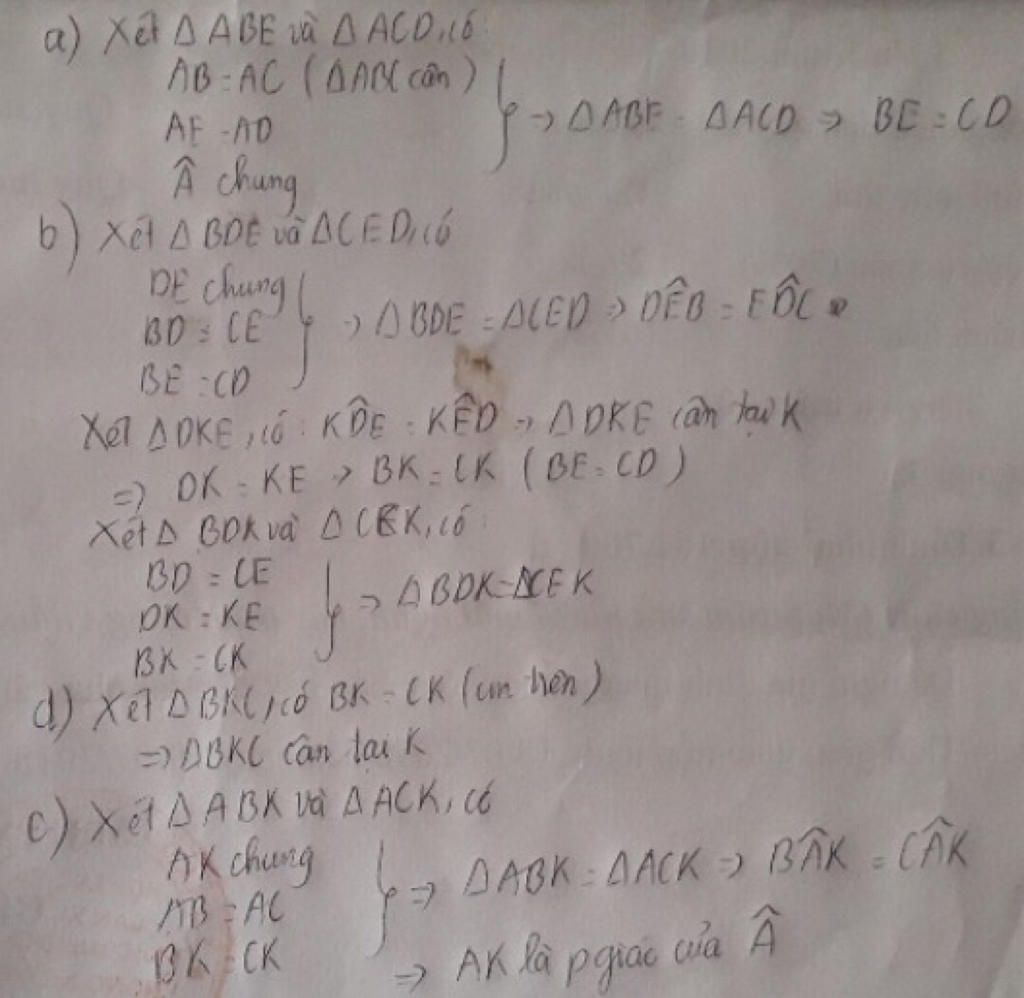 a) Xét ΔABE và ΔACD, có
AB = AC (ΔABC cân)
AE = AD
Â chung
} => ΔABE = ΔACD => BE = CD
b) Xét ΔBDE và ΔCED, có
DE chung
BD = CE
BE = CD
} => ΔBDE = ΔCED => DÊB = ED̂C
Xét ΔDKE, có: KD̂E = KÊD => ΔDKE cân tại K
=> DK = KE => BK = CK (BE = CD)
Xét Δ BDK và ΔCEK, có
BD = CE
DK = KE
BK = CK
} => ΔBDK = ΔCEK
d) Xét ΔBKC, có BK = CK (cm trên)
=> ΔBKC cân tại K
c) Xét ΔABK và ΔACK, có
AK chung
AB = AC
BK = CK
} => ΔABK = ΔACK => BÂK = CÂK
=> AK là pgiác của Â